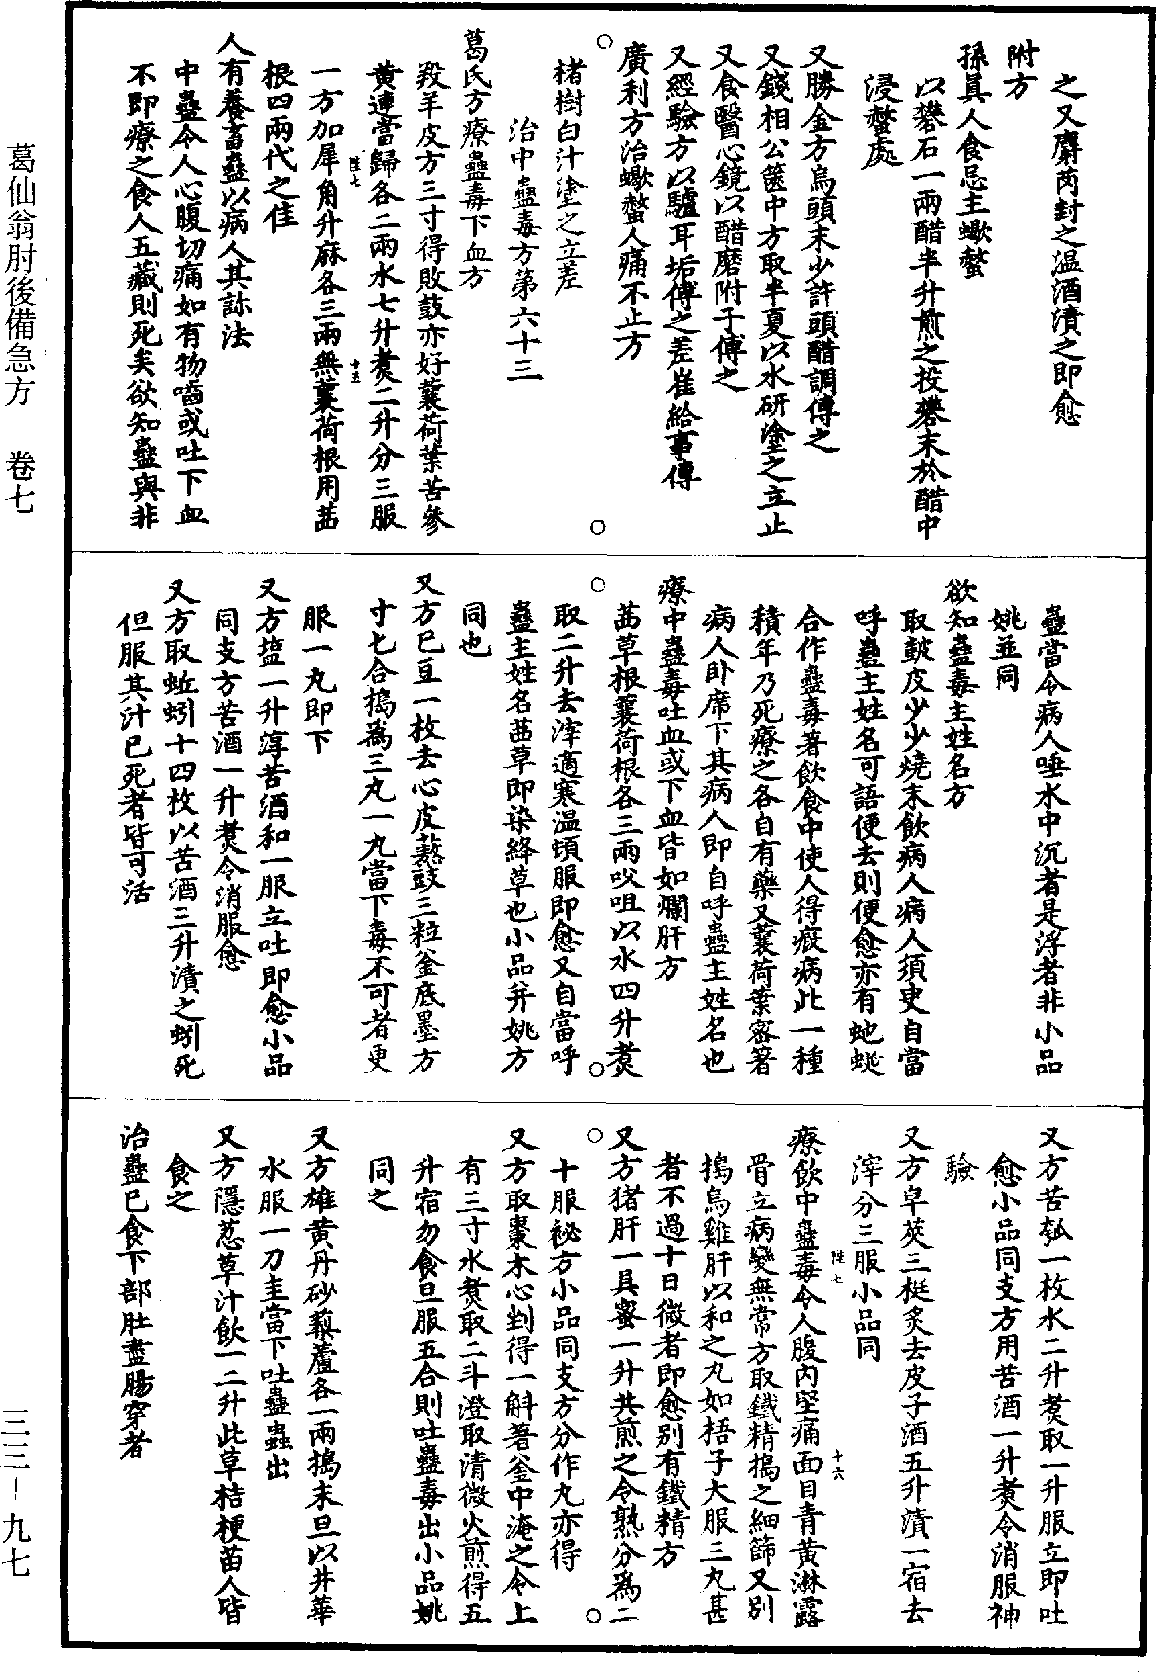 之又麝芮封之温酒漬之即愈
附方
孫真人食忌主蠍螫
以礬石一兩醋半升煎之投礬末於醋中
浸螫處
又勝金方烏頭末少許頭醋調傅之
又錢相公篋中方取半夏以水研塗之立止
又食醫心鏡以醋磨附子傅之
又經驗方以驢耳垢傅之差崔給事傳
廣利方治蠍螫人痛不止方
楮樹白汁塗之立差
治中蠱毒方第六十三
葛氏方療蠱毒下血方
羖羊皮方三寸得敗鼓亦好蘘荷葉苦參
黃連當歸各二兩水七升煑二升分三服
一方加犀角升麻各三兩無蘘荷根用茜
根四兩代之佳
人有養畜蠱以病人其診法
中蠱令人心腹切痛如有物嚙或吐下血
不即療之食人五藏則死矣欲知蠱與非
蠱當令病人唾水中沉者是浮者非小品
姚並同
欲知蠱毒主姓名方
取鼓皮少少燒末飲病人病人須臾自當
呼蠱主姓名可語便去則便愈亦有虵蜣
合作蠱毒著飲食中使人得瘕病此一種
積年乃死療之各自有藥又蘘荷葉密著
病人卧席下其病人即自呼蠱主姓名也
療中蠱毒吐血或下血皆如爛肝方
茜草根蘘荷根各三兩㕮咀以水四升煑
取二升去滓適寒温頓服即愈又自當呼
蠱主姓名茜草即染絳草也小品并姚方
同也
又方巳豆一枚去心皮熬豉三粒釜底墨方
寸匕合搗為三丸一丸當下毒不可者更
服一丸即下
又方塩一升淳苦酒和一服立吐即愈小品
同支方苦酒一升煑令消服愈
又方取蚯蚓十四枚以苦酒三升漬之蚓死
但服其汁已死者皆可活
又方苦瓠一枚水二升煑取一升服立即吐
愈小品同支方用苦酒一升煑令消服神
驗
又方皁莢三梃炙去皮子酒五升漬一宿去
滓分三服小品同
療飲中蠱毒令人腹內堅痛面目青黃淋露
骨立病變無常方取鐵精搗之細篩又別
搗烏雞肝以和之丸如梧子大服三丸甚
者不過十日微者即愈別有鐵精方
又方猪肝一具蜜一升共煎之令熟分為二
十服祕方小品同支方分作丸亦得
又方取棗木心剉得一斛著釜中淹之令上
有三寸水煑取二斗澄取清微火煎得五
升宿勿食旦服五合則吐蠱毒出小品姚
同之
又方雄黃丹砂藜蘆各一兩搗末旦以井華
水服一刀圭當下吐蠱蟲出
又方隱荵草汁飲一二升此草桔梗苗人皆
食之
治蠱已食下部肚盡腸穿者
葛仙翁肘後備急方　卷七
三三－九七